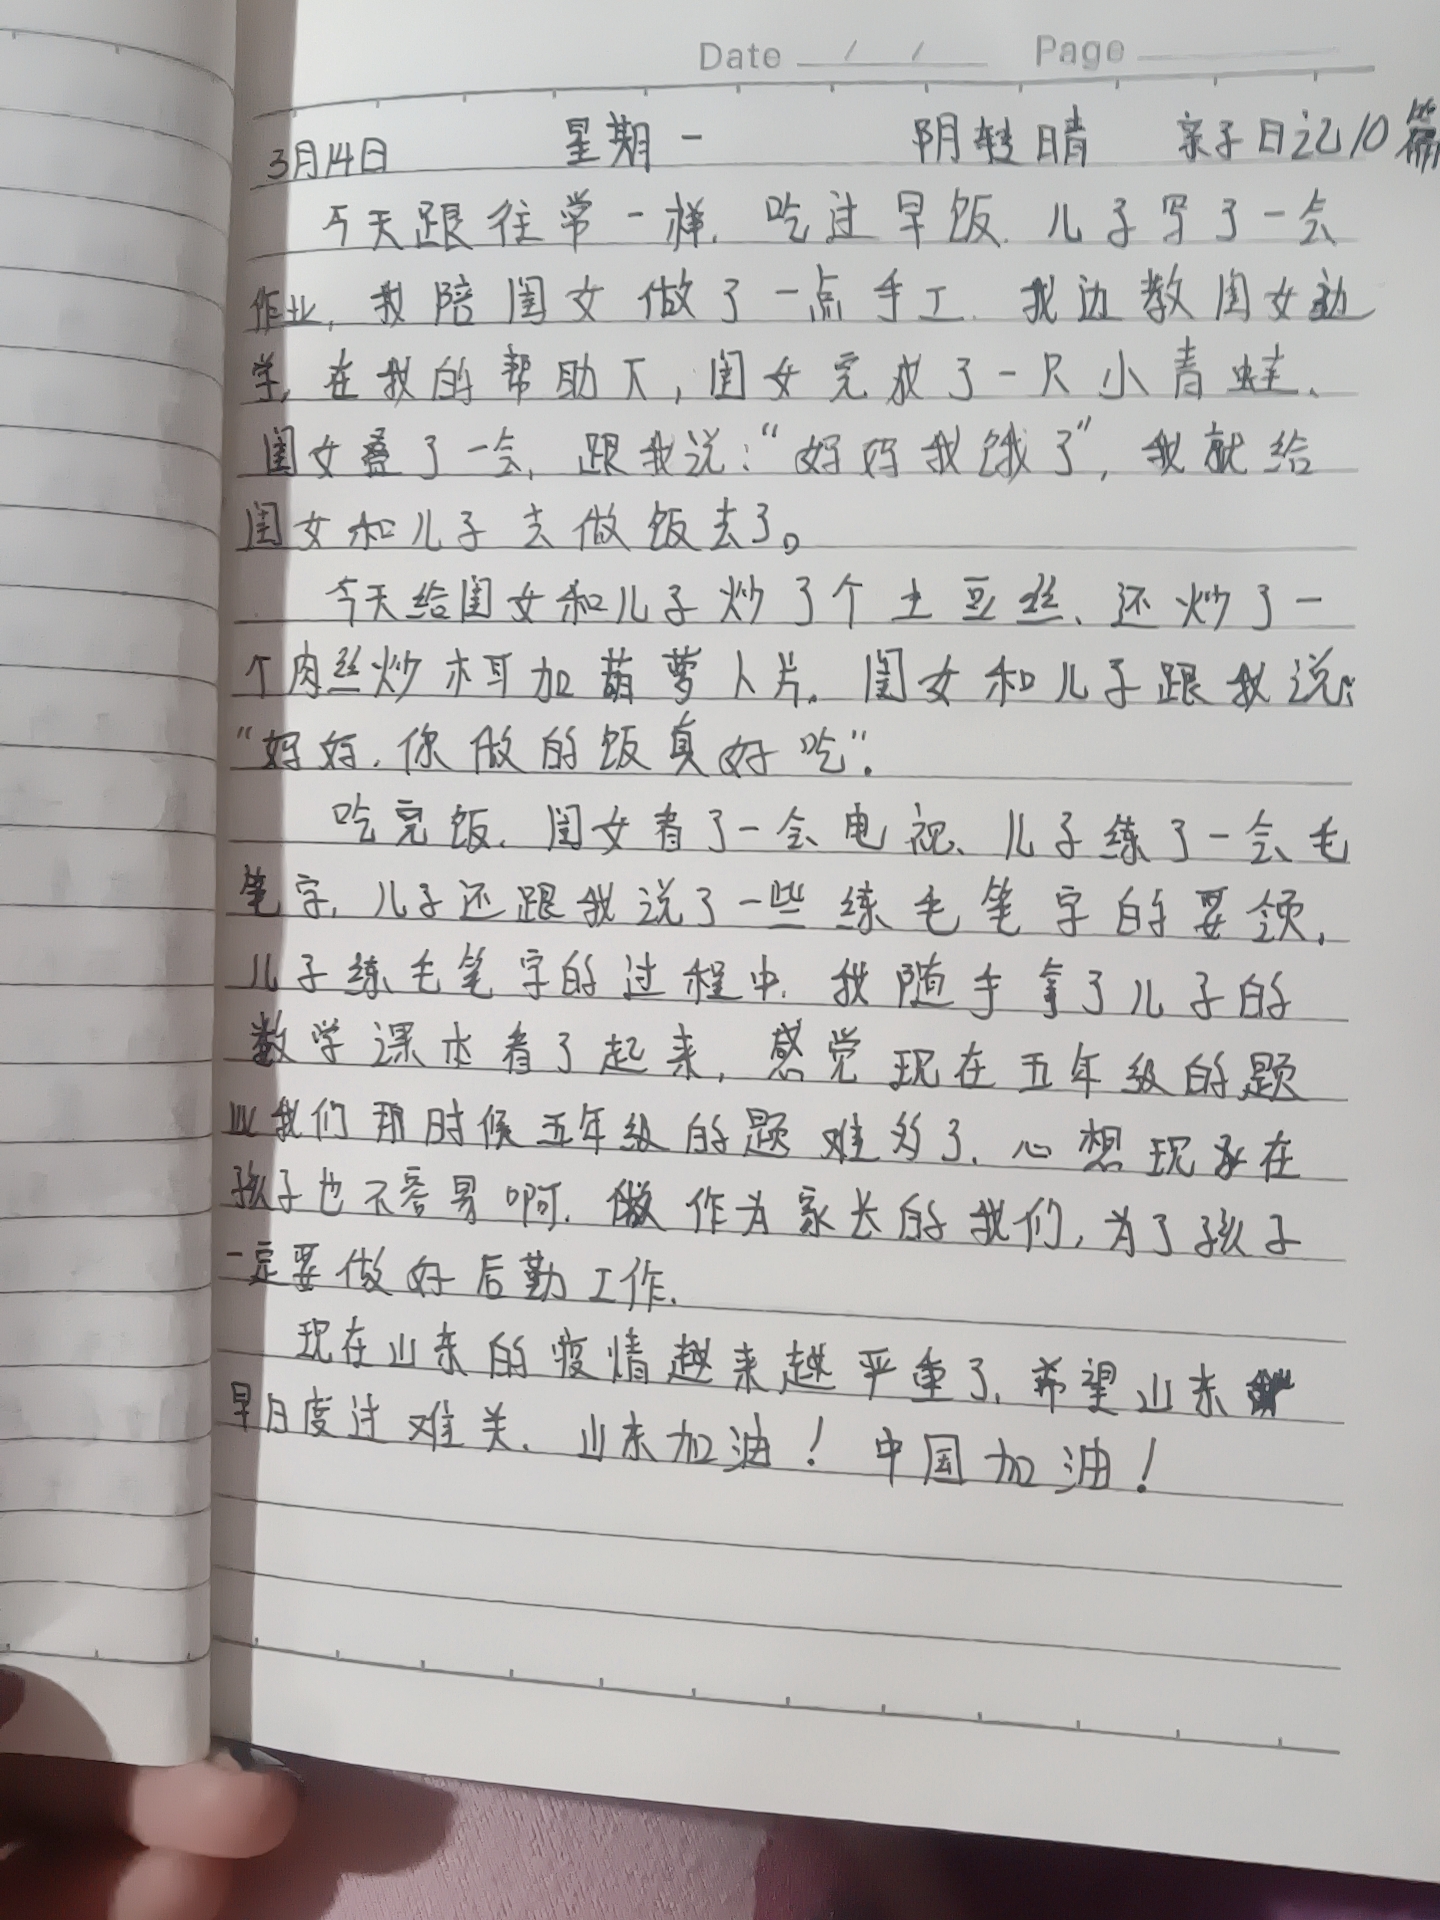 Date / / Page
3月14日 星期一 阴转晴 亲子日记10篇
今天跟往常一样，吃过早饭，儿子写了一会
作业，我陪闺女做了一点手工，我边教闺女边
学，在我的帮助下，闺女完成了一只小青蛙、
闺女叠了一会，跟我说：“妈妈我饿了”，我就给
闺女和儿子去做饭去了。
今天给闺女和儿子炒了个土豆丝、还炒了一
个肉丝炒木耳加葫萝卜片。闺女和儿子跟我说：
“妈妈，你做的饭真好吃”。
吃完饭、闺女看了一会电视、儿子练了一会毛
笔字，儿子还跟我说了一些练毛笔字的要领，
儿子练毛笔字的过程中，我随手拿了儿子的
数学课本看了起来，感觉现在五年级的题
比我们那时候五年级的题难多了、心想现在
孩子也不容易啊，做作为家长的我们，为了孩子
一定要做好后勤工作.
现在山东的疫情越来越严重了，希望山东
早日度过难关、山东加油！中国加油！